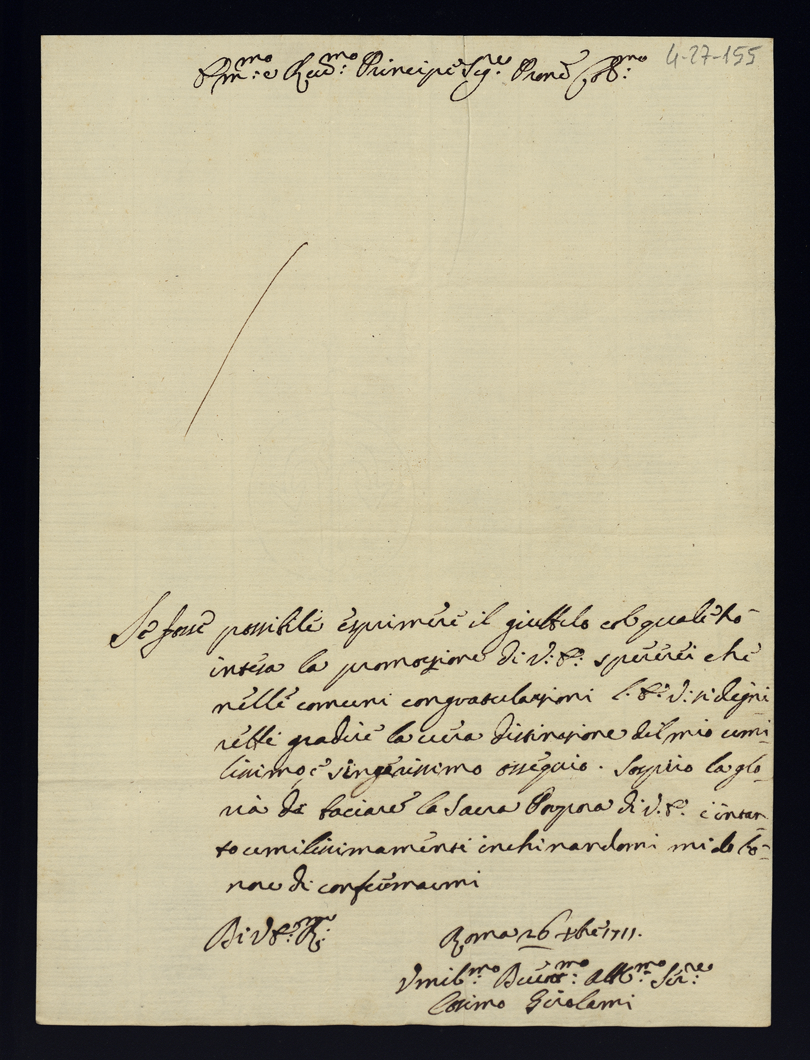 4-27-155
Em:mo e Rev:mo Principe Sig:re Prone Col:mo
Se fosse possibile esprimere il giubbilo col quale hò
intesa la promozione di V: E: spererei che
nelle comuni congratulazioni l: E: V: si degni
rebbe gradire la vera distinzione del mio umi-
lissimo, e singerissimo ossequio. Sospiro la glo-
ria di baciare la Sacra Porpora di V: E: e intan-
to umilissimamente inchinandomi mi dò l'o-
nore di confermarmi
Di V: E: R:ma
Roma 26 Xbre 1711.
Vmil:mo Devot:mo Obb:mo Ser:re
Cosimo Girolami